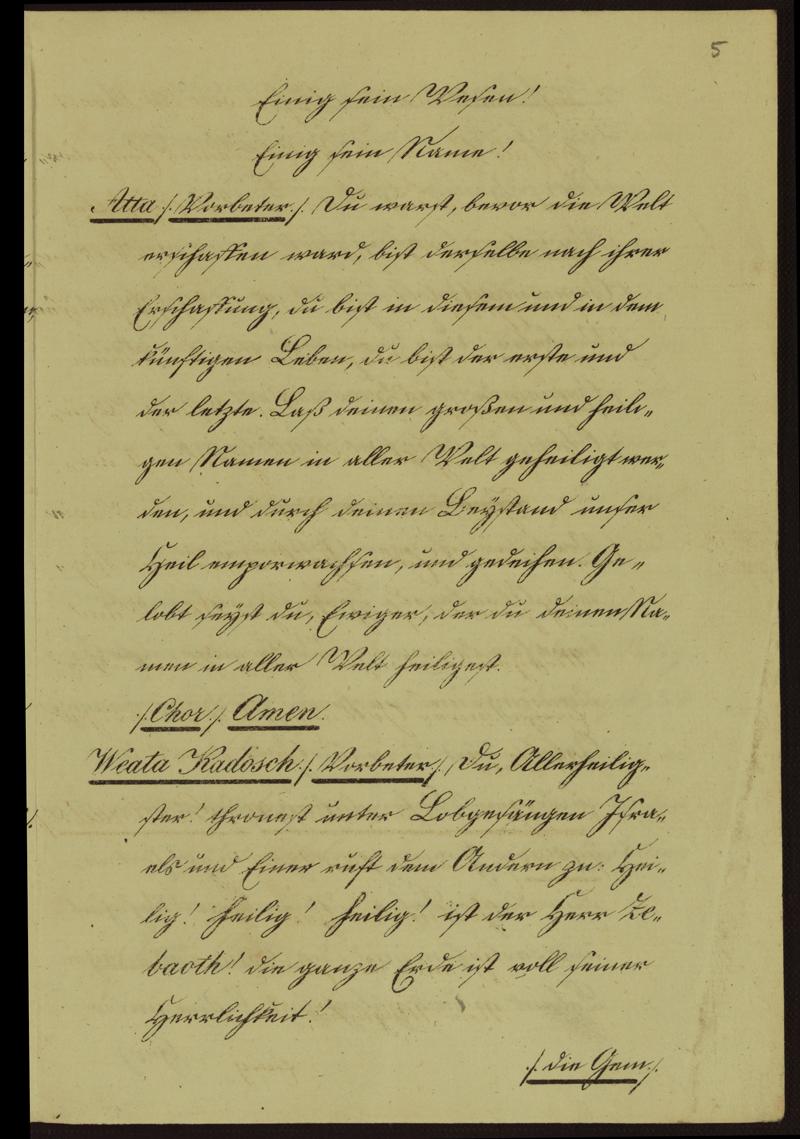 5
Einig sein Wesen!
Einig sein Name!
Atta /: Vorbeter :/ Du warst, bevor die Welt
erschaffen ward, bist derselbe nach ihrer
Erschaffung, du bist in diesem und in dem
künftigen Leben, du bist der erste und
der letzte. Laß deinen großen und heili„
gen Namen in aller Welt geheiligt wer„
den, und durch deinen Beystand unser
Heil emporwachsen, und gedeihen. Ge„
lobt seyst du, Ewiger, der du deinen Na„
men in aller Welt heiligest.
/: Chor :/ Amen.
Weata Kadosch /: Vorbeter :/ Du, Allerheilig„
ster! thronest unter Lobgesängen Isra„
els und Einer ruft dem Andern zu: Hei„
lig! Heilig! Heilig! ist der Herr Ze„
baoth! die ganze Erde ist voll seiner
Herrlichkeit!
/: die Gem :/